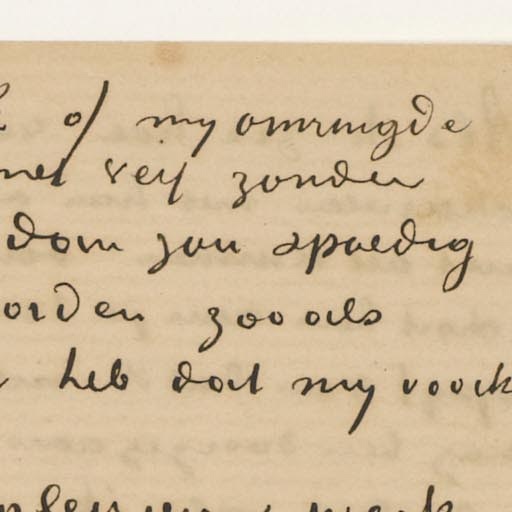 of my omringde
met veij zonder
dom jou spoedig
orden zooals
heb dat my voork
werk